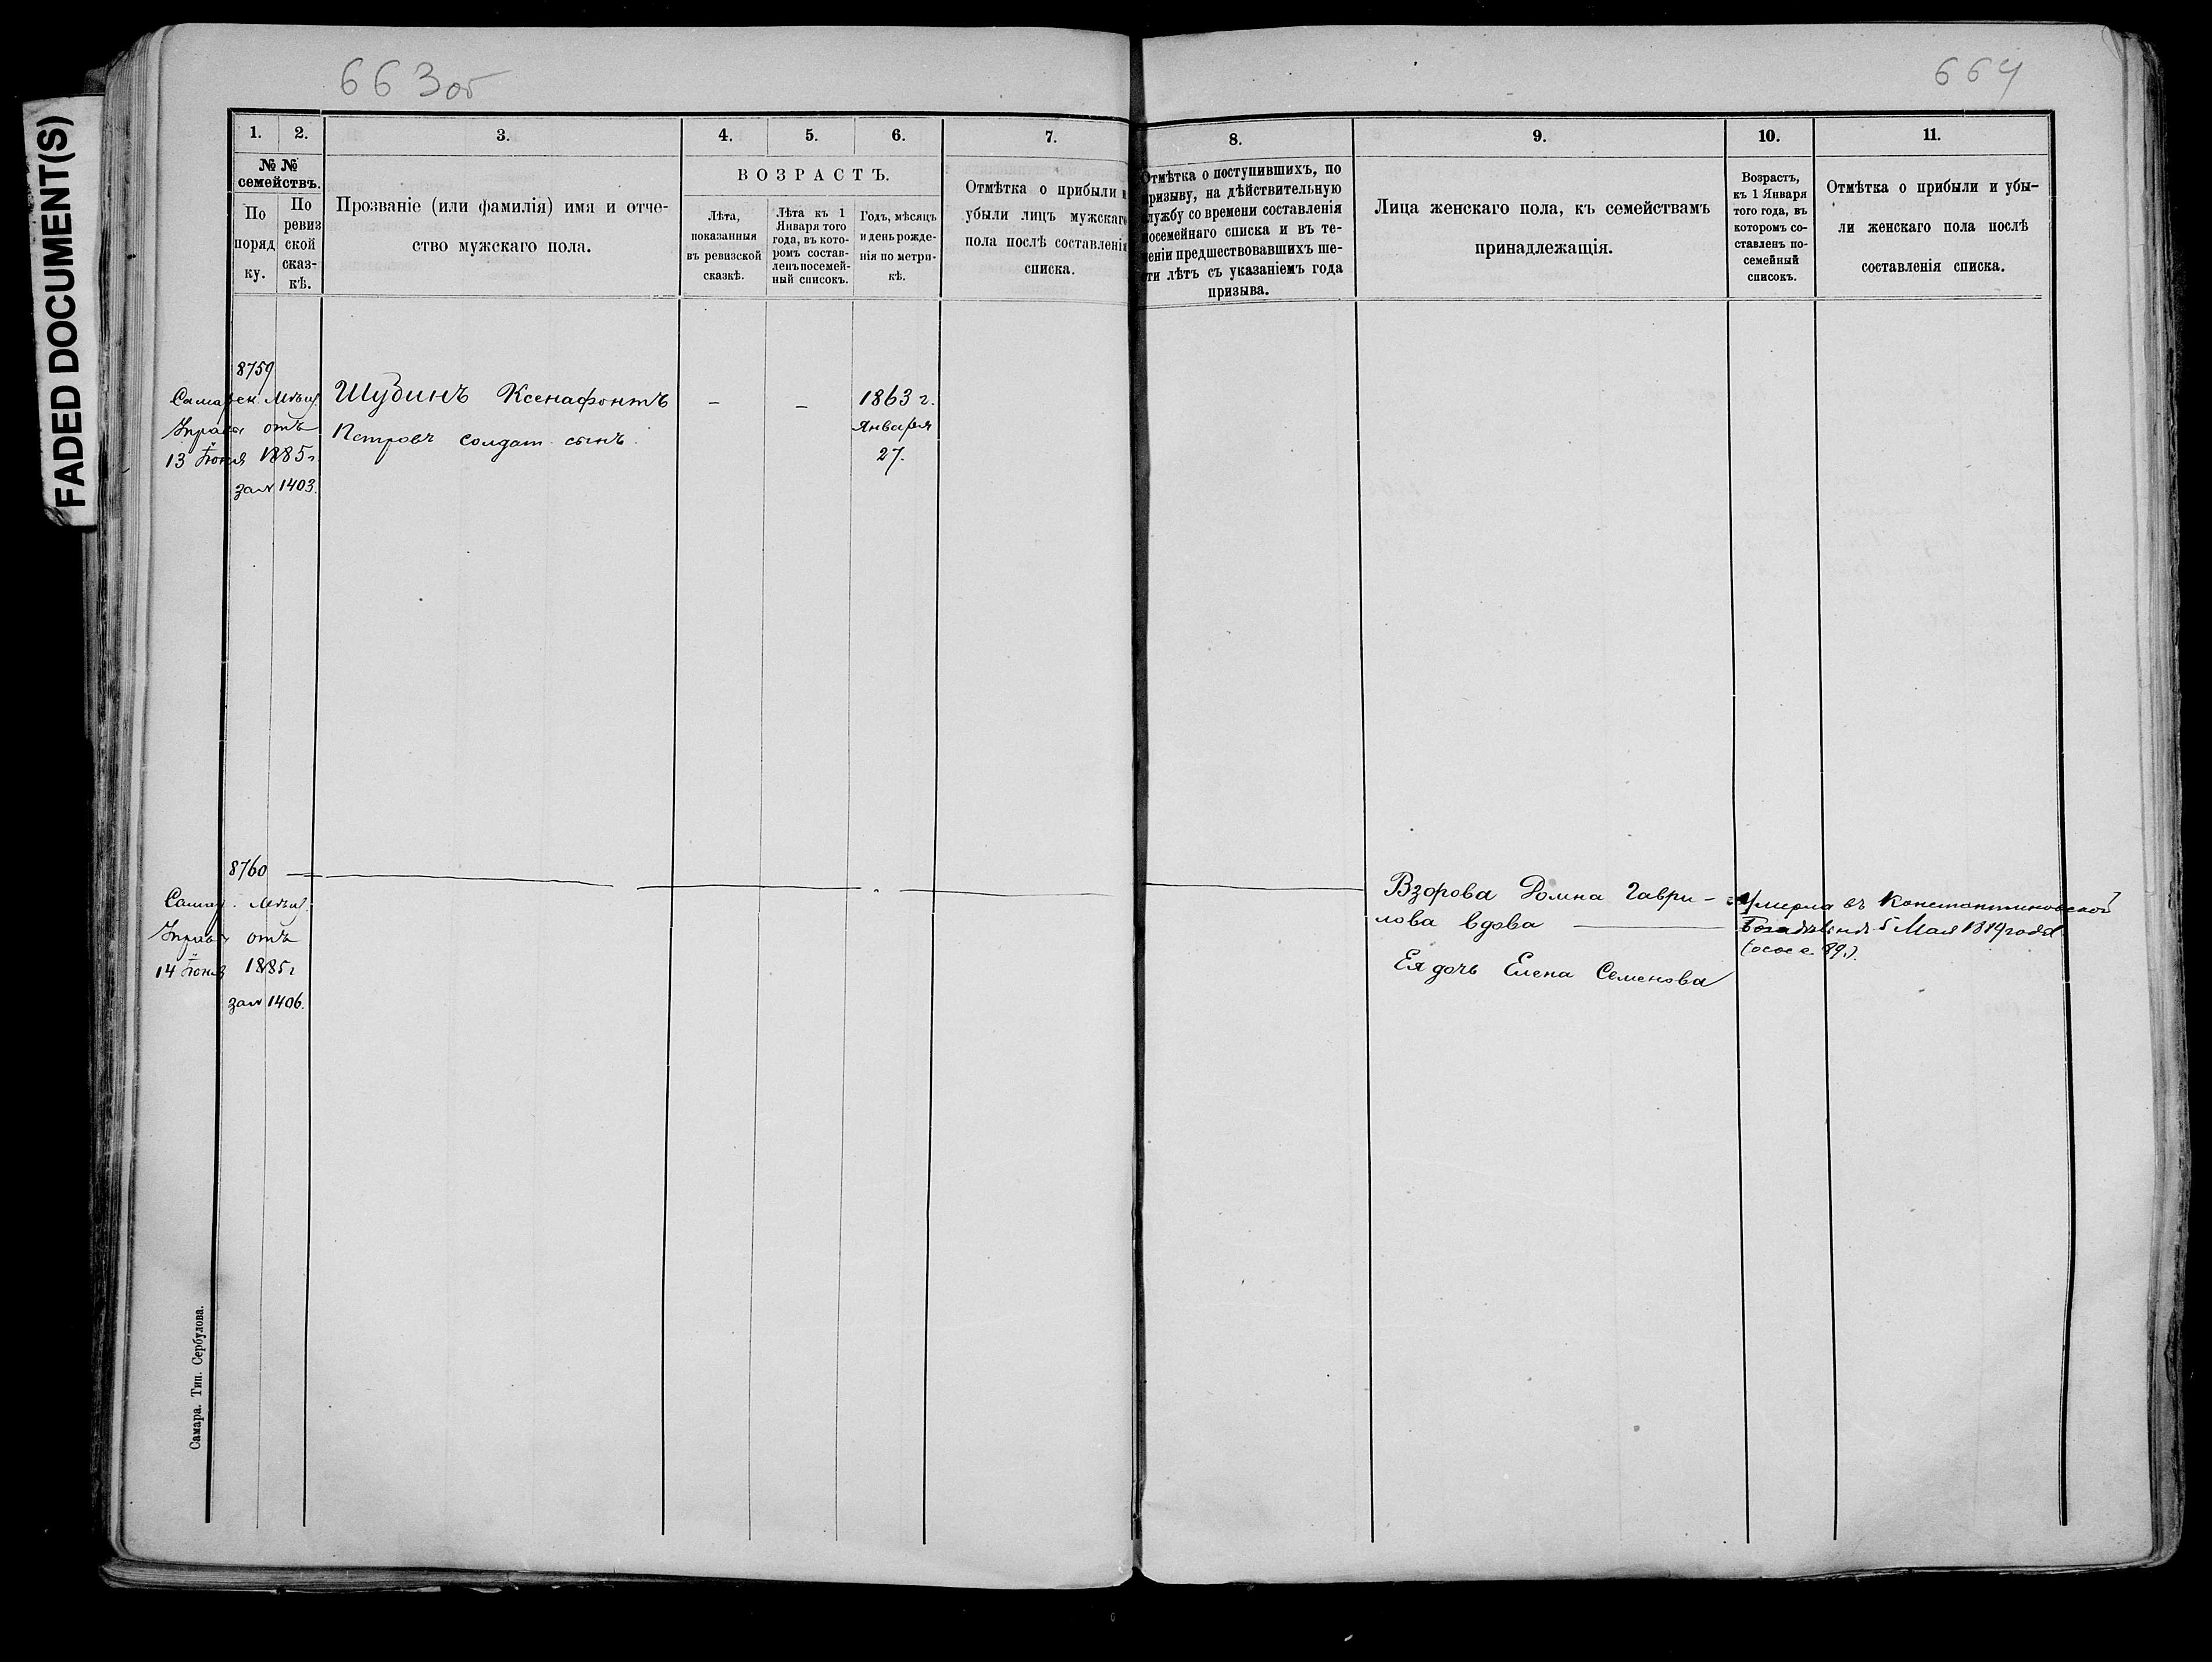 663об
664
FADED DOCUMENT(S)
1.
2.
3.
4.
5.
6.
7.
8.
9.
10.
11.
№ №
семействъ.
По
поряд
ку.
По
ревиз
ской
сказ-
кѣ.
Прозваніе (или фамилія) имя и отче-
ство мужскаго пола.
ВОЗРАСТЪ.
Лѣта,
показанныя
въ ревизской
сказкѣ.
Лѣта къ 1
Января того
года, въ кото-
ромъ состав-
ленъ посемей-
ный списокъ.
Годъ, мѣсяцъ
и день рожде-
нія по метри-
кѣ.
Отмѣтка о прибыли и
убыли лицъ мужскаго
пола послѣ составленія
списка.
Отмѣтка о поступившихъ, по
призыву, на дѣйствительную
службу со времени составленія
посемейнаго списка и въ те-
ченіи предшествовавшихъ ше-
сти лѣтъ съ указаніемъ года
призыва.
Лица женскаго пола, къ семействамъ
принадлежащія.
Возрастъ,
къ 1 Января
того года, въ
которомъ со-
ставленъ по-
семейный
списокъ.
Отмѣтка о прибыли и убы-
ли женскаго пола послѣ
составленія списка.
8759
Самарск. Мѣщ.
Управы отъ
13 Іюня 1885 г.
за № 1403.
Шубинъ Ксенафонтъ
Петровъ солдат. сынъ.
–
–
1863 г.
Января
27.
8760
Самар. Мѣщ.
Управы отъ
14 Іюня 1885 г
за № 1406.
Взорова Домна Гаври-
лова вдова
Ея дочь Елена Семенова
Умерла въ Константиновской
Богадѣльнѣ 5 Мая года
Самара. Тип. Сербулова.